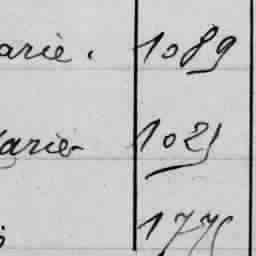 arie. 1089
arie 1021
177